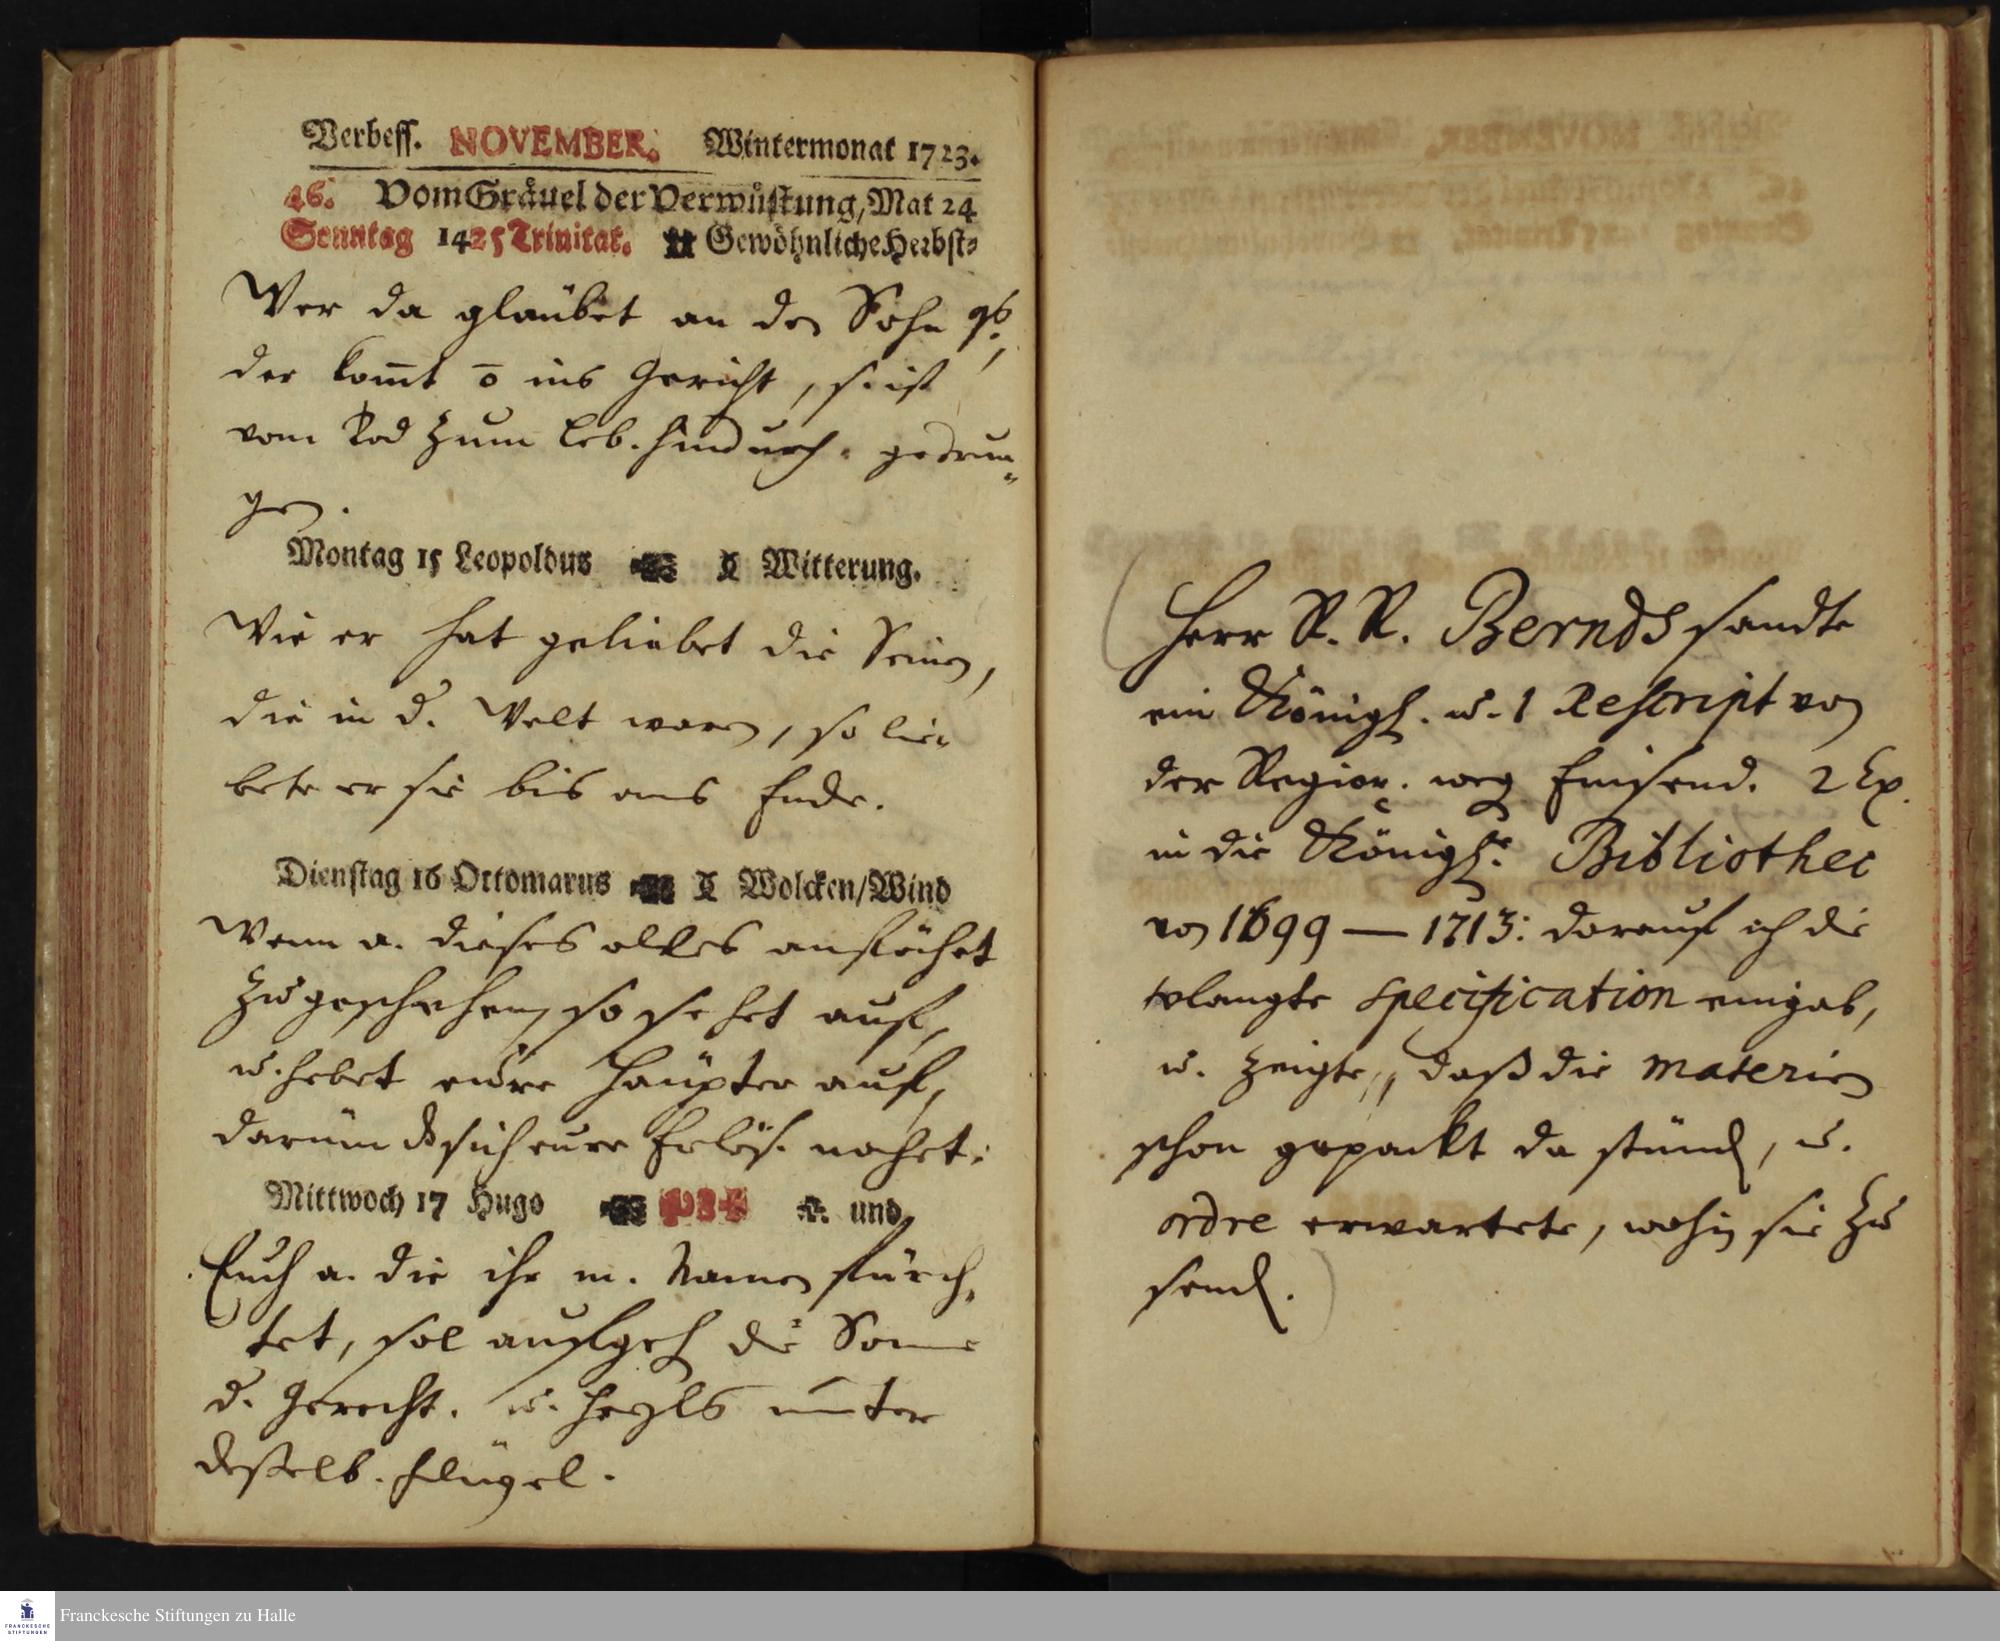 Verbess. NOVEMBER. Wintermonat 1723.
46. Vom Gräuel der Verwüstung, Mat 24
Sonntag 14 25 Trinitat. Gewöhnliche Herbst-
Wer da gläubet an den Sohn
der kom̄t o̅ ins Gericht, s. ist
vom Tod zum Leb. hindurch- gedrun-
gen.
Montag 15 Leopoldus Witterung.
Wie er hat geliebet die Seinen,
die in d. Welt waren, so lie-
bete er sie bis ans Ende.
Dienstag 16 Ottomarus Wolcken/Wind
Wenn a. dieses alles anfähet
zu geschehen, so sehet auf,
u. hebet eure Häupter auf,
darüm sich eure Erlös. nahet.
Mittwoch 17 Hugo und
Euch a. die ihr m. Namen fürch-
tet, sol aufgeh die Sonne
d. Gerecht. u. Heyls unter
deßelb. Flügel.
Herr R. R. Bernds sandte
ein Königl. u. 1 Rescript von
der Regier. weg Einsend. 2 Ex.
in die Königl. Bibliothec
von 1699 — 1713: darauf ich die
vlangte specification eingab,
u. zeigte, daß die materien
schon gepackt da stünd, u.
ordre erwartete, wohin sie zu
send.
Franckesche Stiftungen zu Halle
FRANCKESCHE
STIFTUNGEN